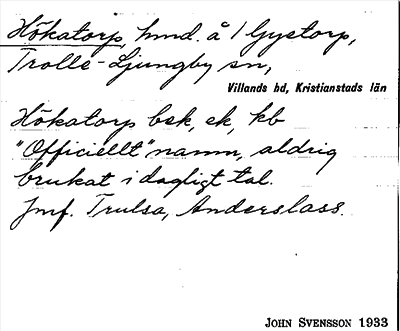 Hökatorp, hmd. å 1 Gyetorp,
Trolle-Ljungby sn,
Villands hd, Kristianstads län
Hökatorp bsk, ek, kb
"Officiellt" namn, aldrig
brukat i dagligt tal.
Jmf. Trulsa, Anderslass.
JOHN SVENSSON 1933